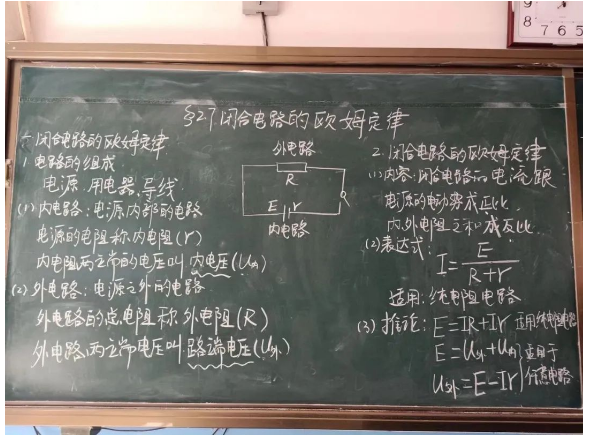 §2.7 闭合电路的欧姆定律
一、闭合电路的欧姆定律
1. 电路的组成
电源、用电器、导线
(1) 内电路：电源内部的电路
电源的电阻称内电阻(r)
内电阻两端的电压叫内电压(U内)
(2) 外电路：电源之外的电路
外电路的总电阻称外电阻(R)
外电路两端电压叫路端电压(U外)
外电路
R
E r
内电路
2. 闭合电路的欧姆定律
(1) 内容：闭合电路的电流跟
电源的电动势成正比
内、外电阻之和成反比
(2) 表达式：I=E/(R+r)
适用：纯电阻电路
(3) 推论：E=IR+Ir 适用纯电阻电路
E=U外+U内
U外=E-Ir
适用于
任意电路
9
8
7 6 5